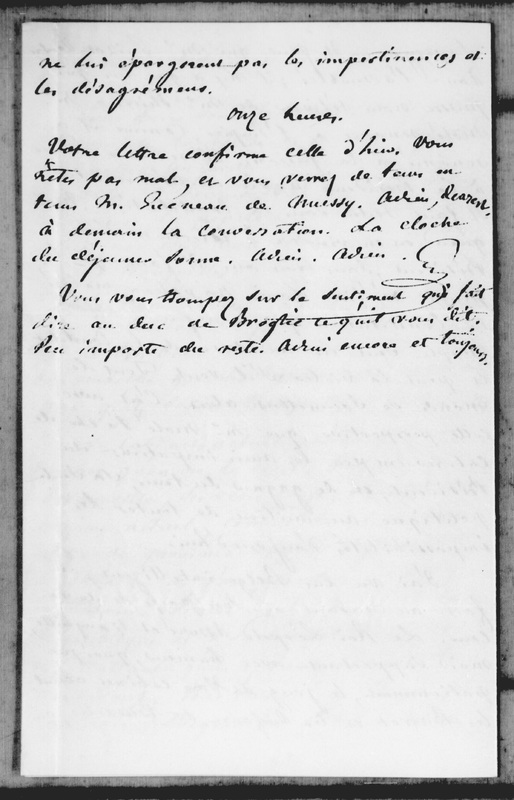 ne lui épargneront pas les impertinences et
les désagréments.
Onze heures.
Votre lettre confirme celle d'hier. Vous
n'êtes pas mal, et vous verrez de tems en
tems M. Gueneau de Mussy. Adieu, dearest,
à demain la conversation. La cloche
du déjeuner sonne. Adieu. Adieu. G
Vous vous trompez sur le sentiment qui fait
dire au duc de Broglie ce qu'il vous dit.
Peu importe du reste. Adieu encore et toujours.